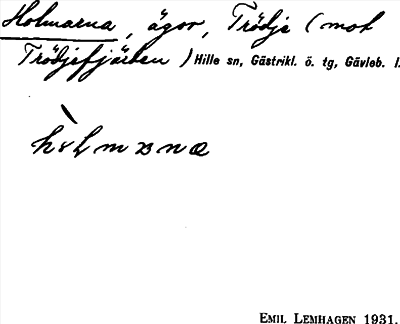 Holmarna, ägor, Trödje (mot
Trödjefjärden) Hille sn, Gästrikl. ö. tg, Gävleb. l.
EMIL LEMHAGEN 1931.